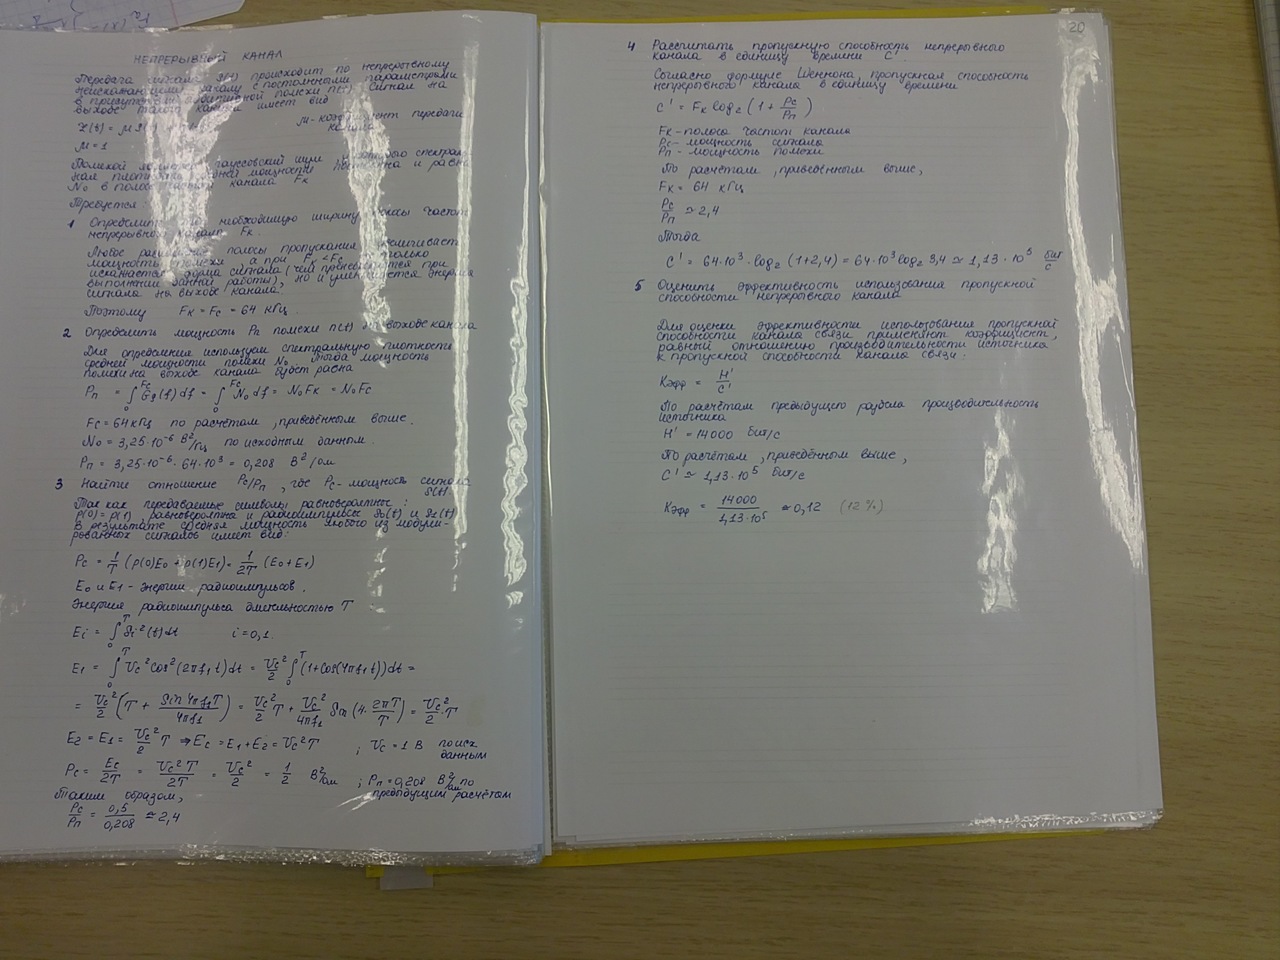 НЕПРЕРЫВНЫЙ КАНАЛ
Передача сигнала происходит по непрерывному
неискажающему каналу с постоянными параметрами
в присутствии помехи n(t). Сигнал на
выходе такого канала имеет вид
μ - коэффициент передачи
канала
μ = 1
Помехой гауссовский шум,
мощности и равна
N₀ в полосе канала Fк
Требуется:
1 Определить необходимую ширину полосы частот
непрерывного канала Fк.
Любое полосы пропускания увеличивает
мощность помехи, а при Fк < Fс не только
искажается форма сигнала (чем пренебрегается при
выполнении данной работы), но и уменьшается энергия
сигнала на выходе канала.
Поэтому Fк = Fс = 64 кГц.
2 Определить мощность Pп помехи n(t) на выходе канала
Для определения используем спектральную плотность
средней мощности помехи N₀. Тогда мощность
помехи на выходе канала будет равна
Fс = 64 кГц по расчётам, приведённым выше.
N₀ = 3,25·10⁻⁶ В²/Гц по исходным данным.
Pп = 3,25·10⁻⁶ · 64·10³ = 0,208 В²/ом
3 Найти отношение Pс/Pп, где Pс - мощность сигнала
S(t).
Так как передаваемые символы равновероятные:
p(0) = p(1), равновероятны и радиоимпульсы S₀(t) и S₁(t)
В результате средняя мощность любого из модули-
рованных сигналов имеет вид:
Pс = 1/T (p(0)E₀ + p(1)E₁) = 1/2T (E₀ + E₁)
E₀ и E₁ - энергии радиоимпульсов.
Энергия радиоимпульса длительностью T
Ei = ∫₀ᵀ Si²(t)dt i = 0,1.
E₁ = ∫₀ᵀ Uc² cos²(2πf₁t)dt = Uc²/2 ∫₀ᵀ (1+cos(4πf₁t))dt =
= Uc²/2 (T + Sin4πf₁T/4πf₁) = Uc²/2 T + Uc²/4πf₁ Sin (4· 2πT/T) = Uc²/2 ·T
E₂ = E₁ = Uc²/2 T ⇒ Ec = E₁ + E₂ = Uc²T ; Uc = 1 В по исх.
данным
Pс = Ec/2T = Uc²T/2T = Uc²/2 = 1/2 В²/ом ; Pп = 0,208 В²/ом по
предыдущим расчётам
Таким образом,
Pс/Pп = 0,5/0,208 ≃ 2,4
20
4 Рассчитать пропускную способность непрерывного
канала в единицу времени C'.
Согласно формуле Шеннона, пропускная способность
непрерывного канала в единицу времени
C' = Fк log₂ (1 + Pс/Pп)
Fк - полоса частот канала
Pс - мощность сигнала
Pп - мощность помехи
По расчётам, приведённым выше,
Fк = 64 кГц
Pс/Pп ≃ 2,4
Тогда
C' = 64·10³ · log₂ (1+2,4) = 64·10³ log₂ 3,4 ≃ 1,13 · 10⁵ бит/с
5 Оценить эффективность использования пропускной
способности непрерывного канала
Для оценки эффективности использования пропускной
способности канала связи применяют коэффициент,
равный отношению производительности источника
к пропускной способности канала связи:
Kэфф = H'/C'
По расчётам предыдущего раздела производительность
источника
H' = 14000 бит/с
По расчётам, приведённым выше,
C' ≃ 1,13·10⁵ бит/с
Kэфф = 14000/1,13·10⁵ ≃ 0,12 (12%)